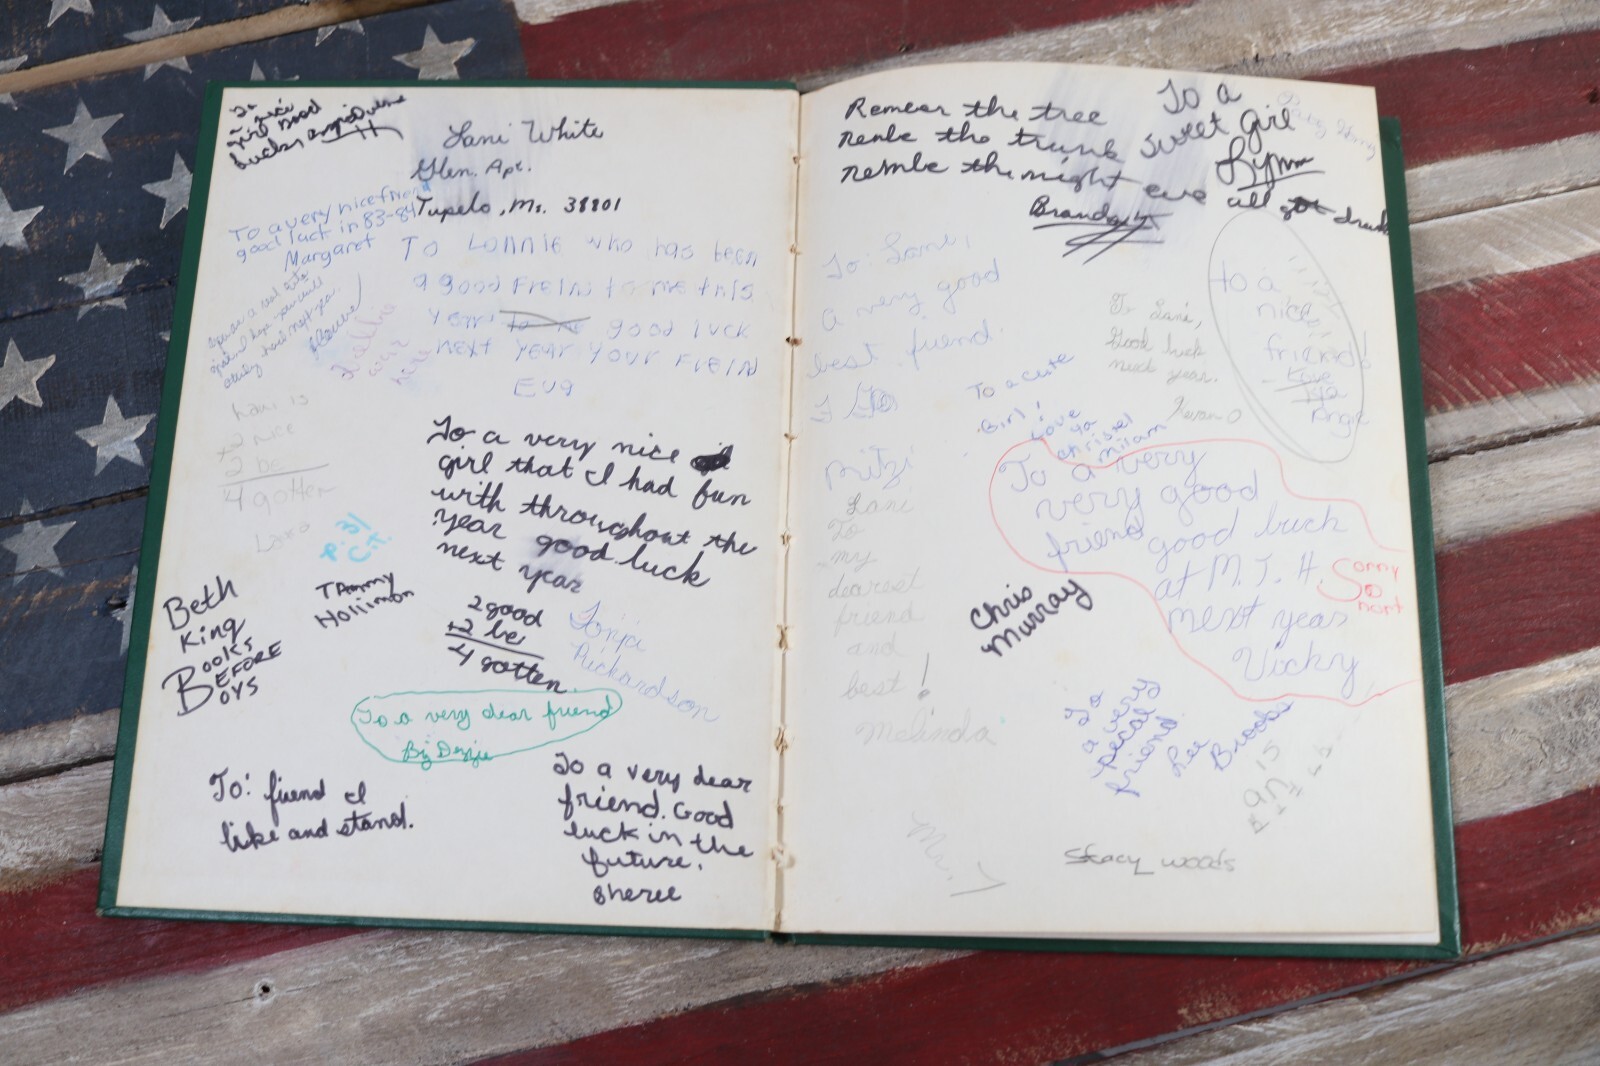 To
a nice
girl Good
luck,
Lani White
Glen. Apt.
Tupelo, Ms. 38801
To a very nice friend
good luck in 83-84
Margaret
To Lonnie who has been
a good Frein to me this
year to me good luck
next year your Frein
Eug
Lani is
+2 nice
2 be
4 gotten
Lara
P.31
C.T.
To a very nice
girl that I had fun
with throughout the
year good luck
next year
2 good
+2 be
4 gotten
Tonja
Richardson
Beth
King
Books
BEFORE
OYS
TAmmy
Hollimon
To a very dear friend
By
To: fiend I
like and stand.
To a very dear
friend. Good
luck in the
future.
Sheree
Remear the tree
renbe the trunk
rembe the night eve all got drunk
Brandy
To a
sweet girl
Lynn
To: Lani,
a very good
best friend
Mitzi
To Lani,
Good luck
next year.
Kevan O
to a
nice
friend!
Love
Ya
Angie
To a cute
Girl!
Love
Ya
Christel
Milam
To a very
very good
friend
good luck
at M.J.H.
next year
Vicky
Sorry
So
Lani
To
my
dearest
friend
and
best!
Melinda
Chris
Murray
To
a very
specal
friend
Lee
Brooks
Mr. T
Stacy woods